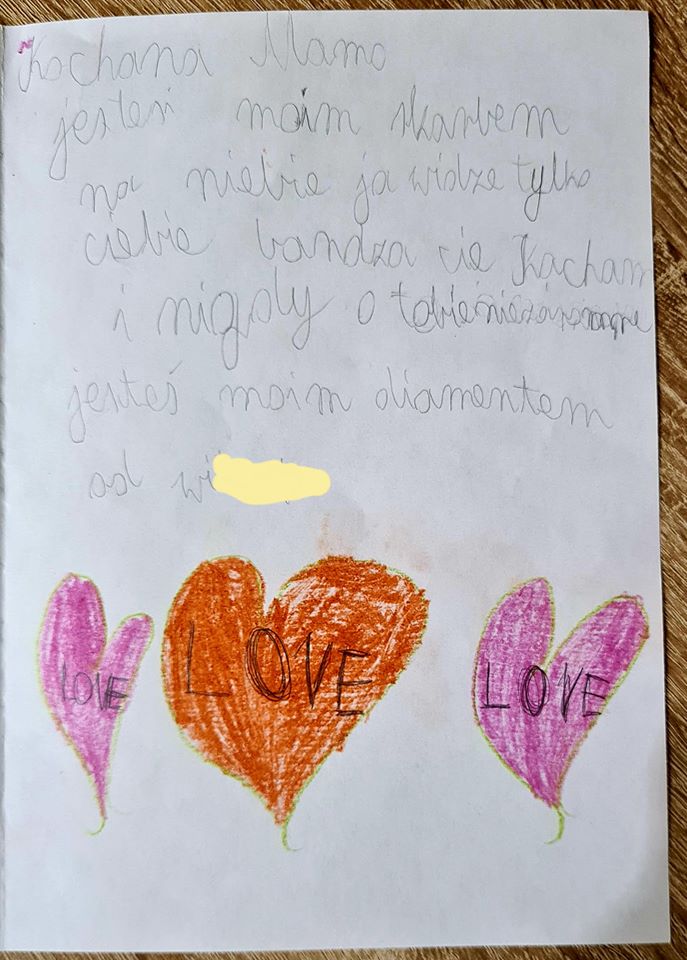 Kochana Mamo
jesteś moim skarbem
na niebie ja widze tylko
ciebie bandza cie Kocham
i nigdy o tobie nie
jesteś moim diamentem
od wi
LOVE LOVE LOVE